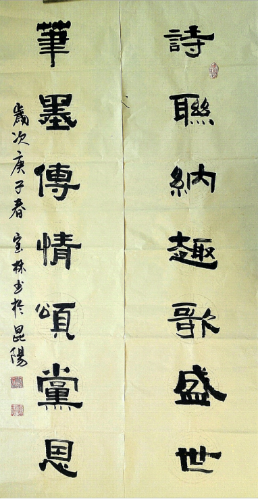 詩聯納趣歌盛世
筆墨傳情頌黨恩
歲次庚子春宝林书於昆陽